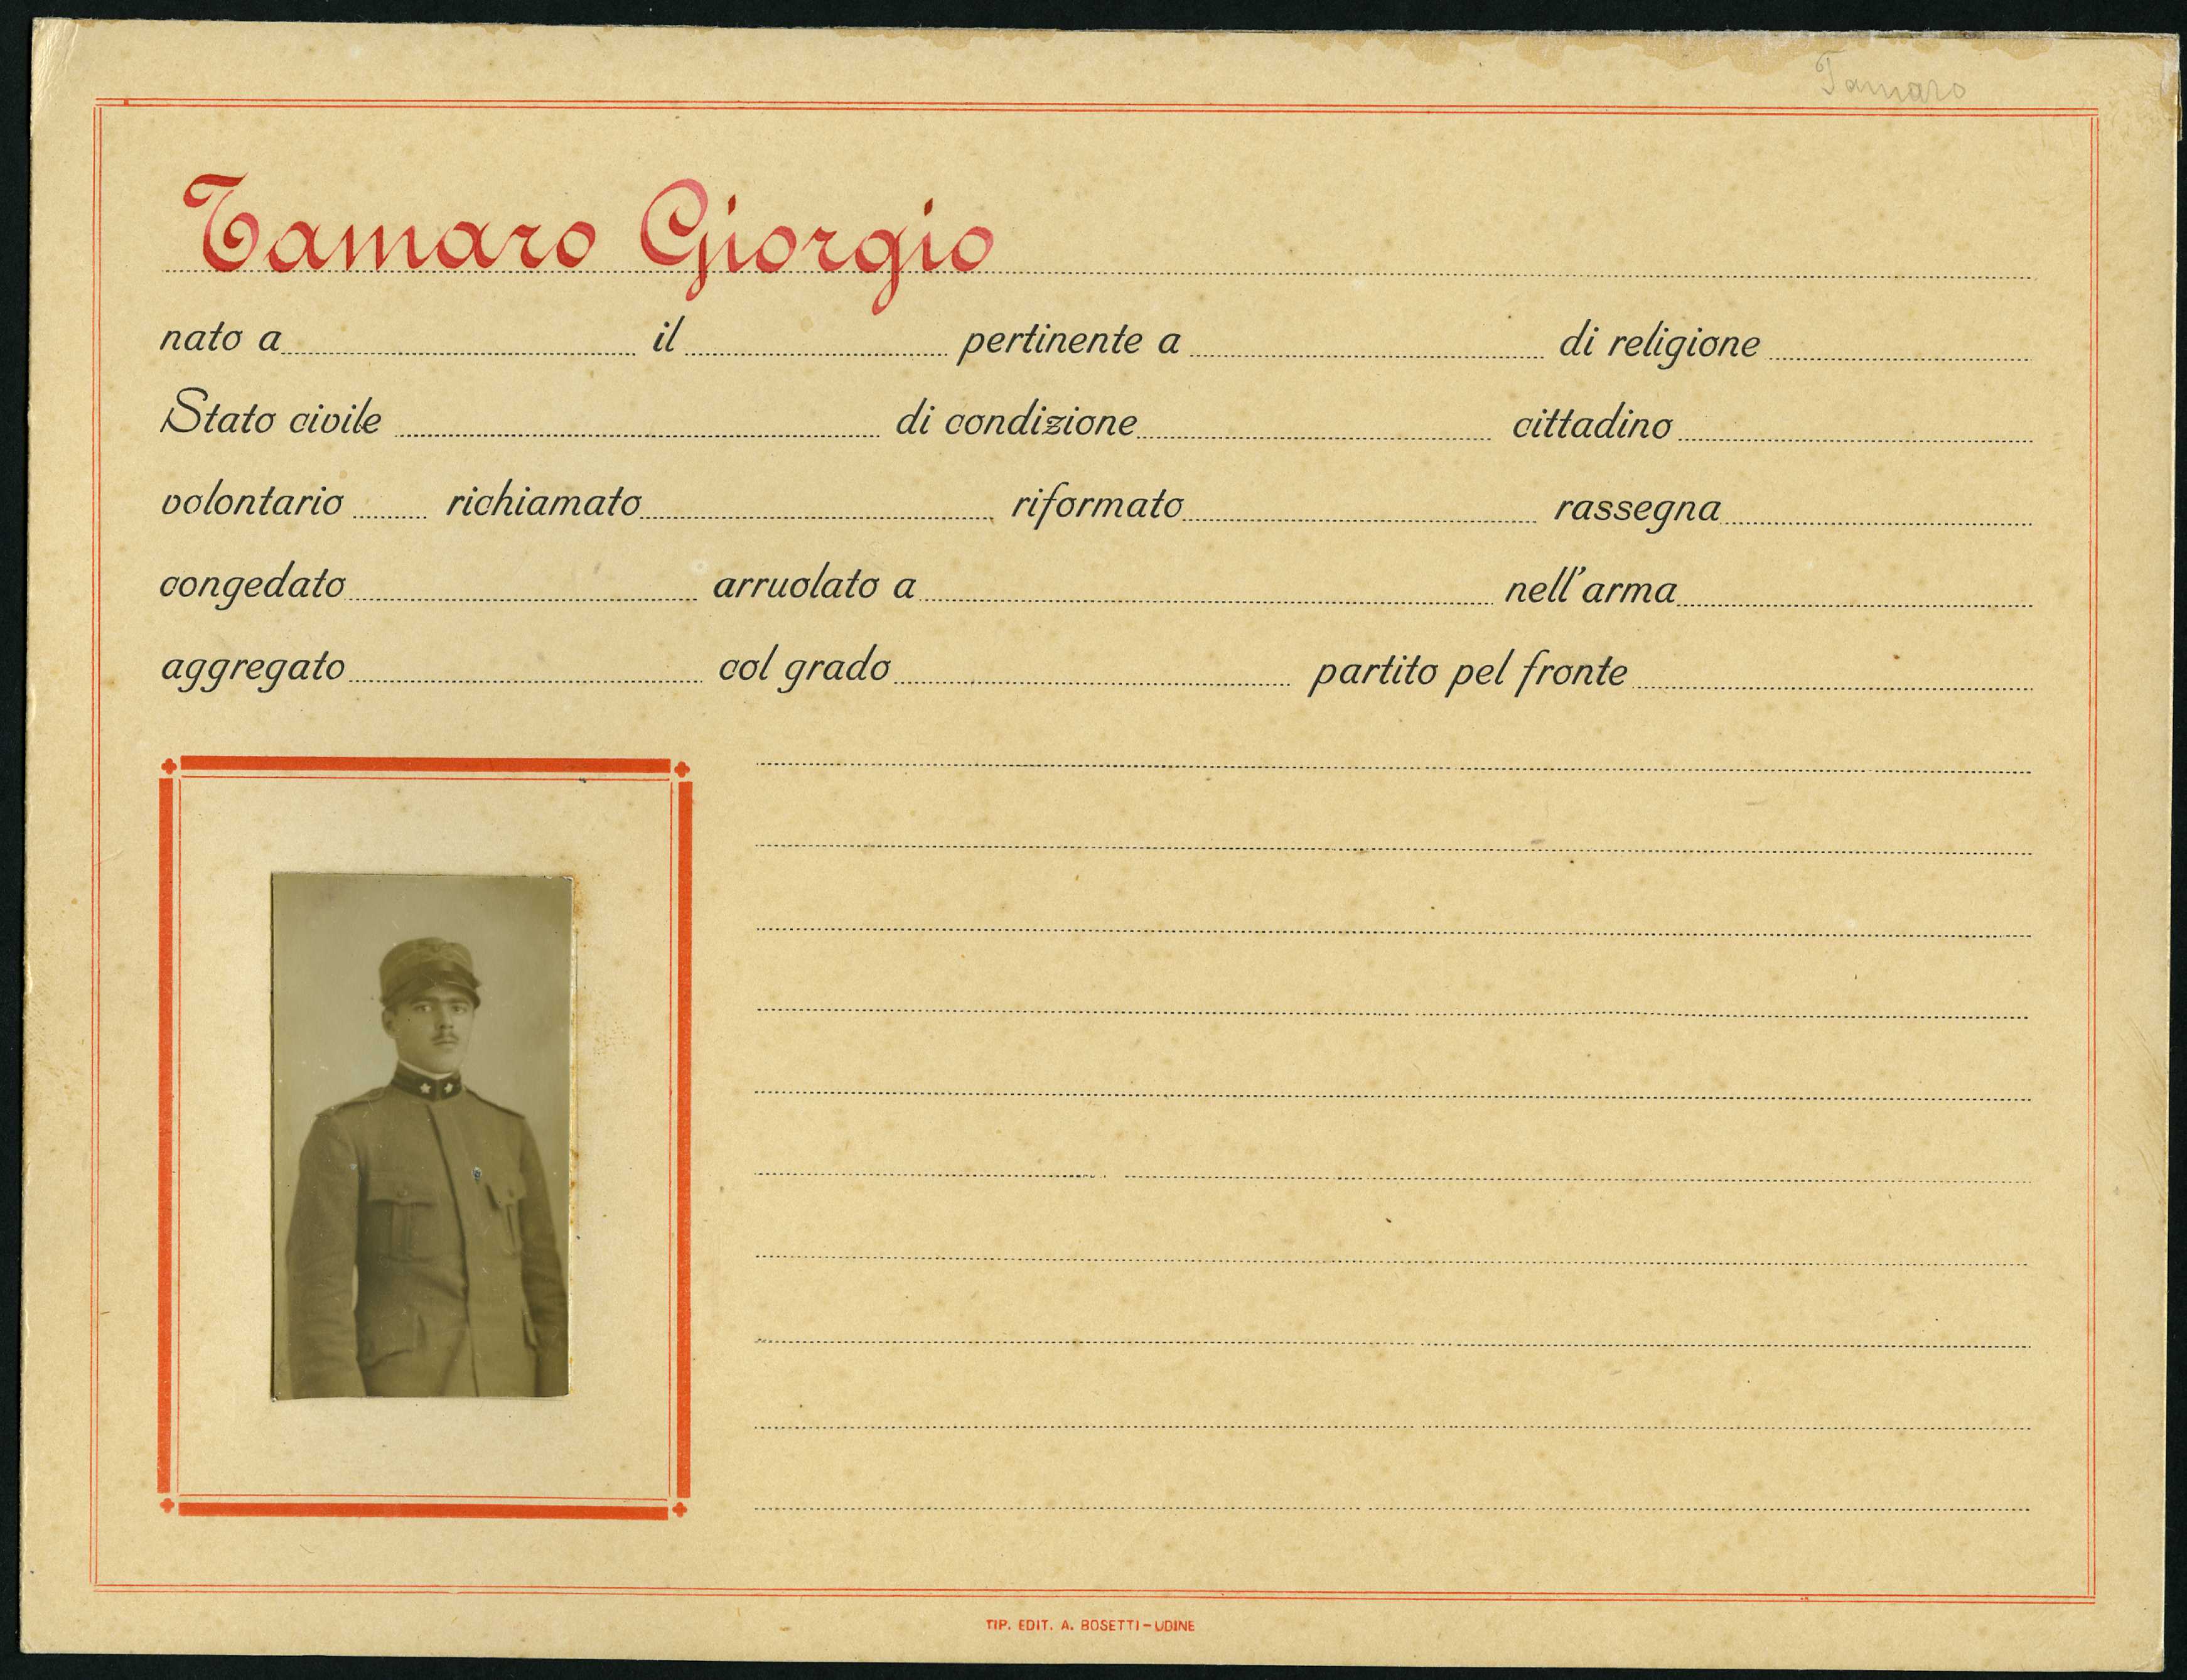 Tamaro
Tamaro Giorgio
nato a il pertinente a di religione
Stato civile di condizione cittadino
volontario richiamato riformato rassegna
congedato arruolato a nell'arma
aggregato col grado partito pel fronte
TIP. EDIT. A. BOSETTI - UDINE